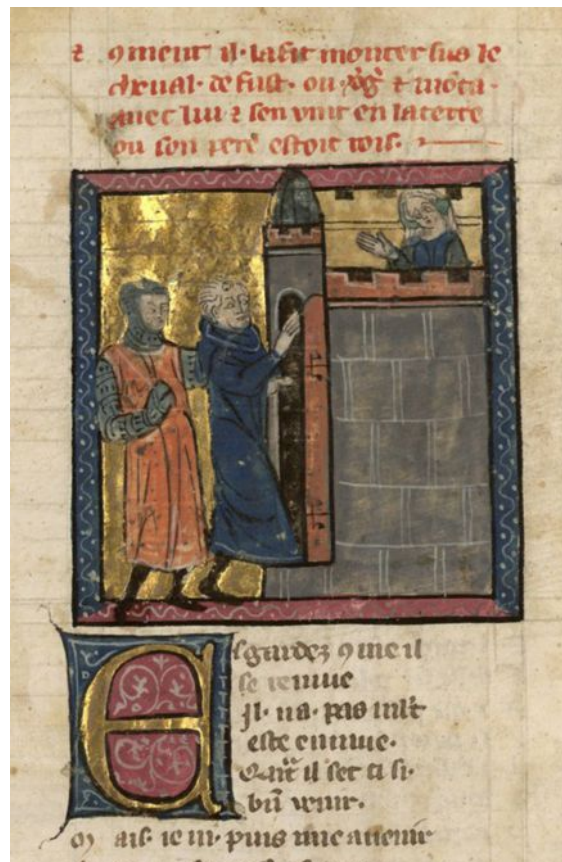 ⁊ ꝯment il la fit monter sus le
cheual · de fust · ou ⁊ mōta ·
auec lui ⁊ sen vint en la terre
ou son pere estoit rois ·
Esgardez ꝯme il
se remue
Il · na · pas mlt
este en mue ·
Qāt il set ci si ·
biī venir ·
M ais · ie ni · puis mie auenir